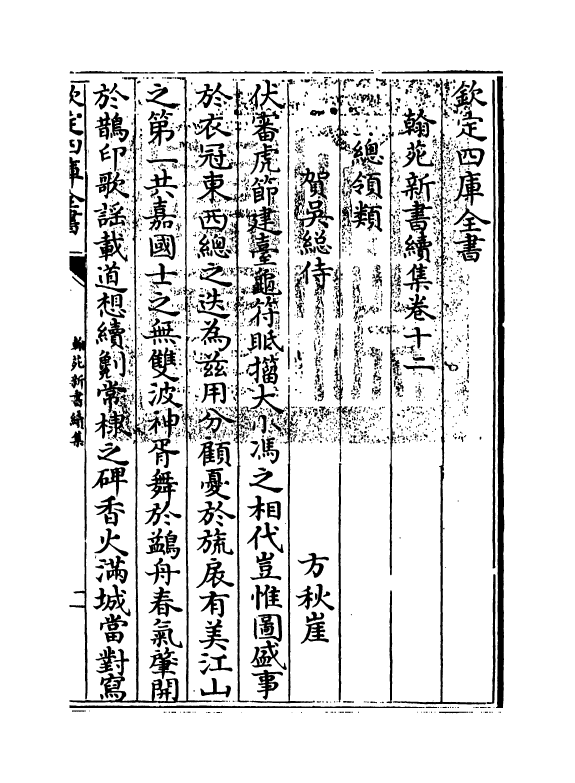 欽定四庫全書
翰苑新書續集卷十二
總領類
賀吳総侍 方秋崖
伏審虎節建臺龜符眂籀大小馮之相代豈惟圖盛事
於衣冠東西總之迭為兹用分顧憂於旒扆有美江山
之第一共嘉國士之無雙波神胥舞於鷁舟春氣肇開
於鵲印歌謡載道想續刋常棣之碑香火滿城當對寫
欽定四庫全書
翰苑新書續集